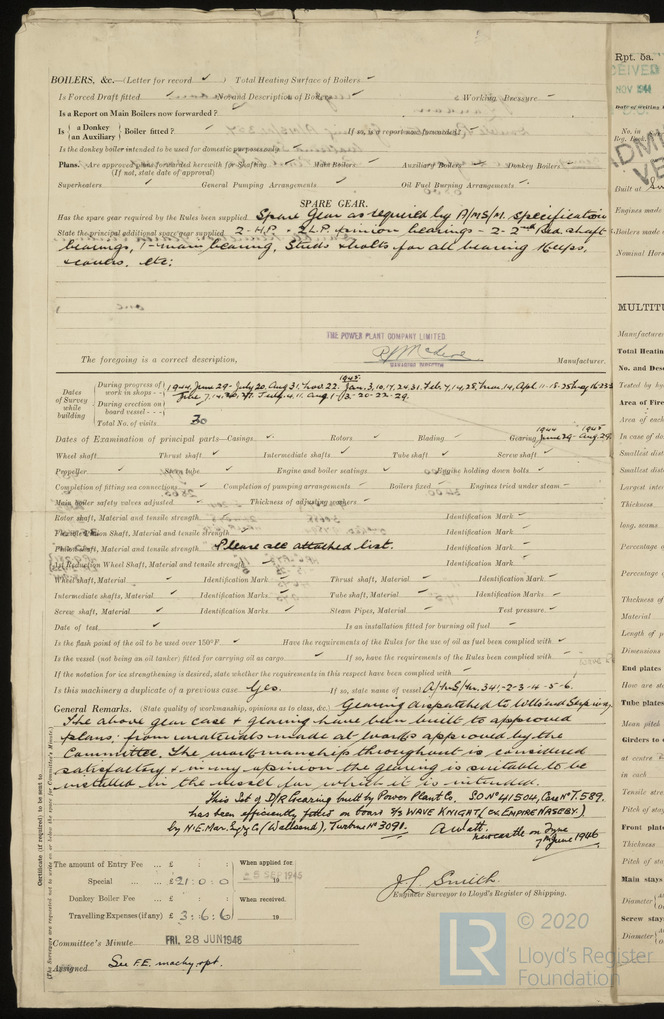 BOILERS, &c.—(Letter for record ✓ ) Total Heating Surface of Boilers ✓
Is Forced Draft fitted ✓ No. and Description of Boilers ✓ Working Pressure ✓
Is a Report on Main Boilers now forwarded? ✓
Is { a Donkey / an Auxiliary } Boiler fitted? ✓ If so, is a report now forwarded? ✓
Is the donkey boiler intended to be used for domestic purposes only ✓
Plans. Are approved plans forwarded herewith for Shafting ✓ Main Boilers ✓ Auxiliary Boilers ✓ Donkey Boilers ✓
(If not, state date of approval)
Superheaters ✓ General Pumping Arrangements ✓ Oil Fuel Burning Arrangements ✓
SPARE GEAR.
Has the spare gear required by the Rules been supplied Spare Gear as required by A/MS/M. Specification
State the principal additional spare gear supplied 2-H.P. & 2 L.P. pinion bearings - 2 - 2nd Red. shaft
bearings, 1-main bearing, Studs & bolts for all bearing Keeps,
& covers. etc:
THE POWER PLANT COMPANY LIMITED.
The foregoing is a correct description,
MANAGING DIRECTOR
Manufacturer.
Dates of Survey while building
During progress of work in shops - - 1944 June 29 - July 20, Aug 31, Nov 22. 1945. Jan. 3, 10, 17, 24, 31. Feb. 7, 14, 25,
During erection on board vessel - - -
Total No. of visits 30
Dates of Examination of principal parts—Casings ✓ Rotors ✓ Blading ✓ Gearing 1944 June 29 - 1945 Aug. 29.
Wheel shaft ✓ Thrust shaft ✓ Intermediate shafts ✓ Tube shaft ✓ Screw shaft ✓
Propeller ✓ Stern tube ✓ Engine and boiler seatings ✓ Engine holding down bolts ✓
Completion of fitting sea connections ✓ Completion of pumping arrangements ✓ Boilers fixed ✓ Engines tried under steam ✓
Main boiler safety valves adjusted ✓ Thickness of adjusting washers ✓
Rotor shaft, Material and tensile strength ✓ Identification Mark ✓
Flexible Pinion Shaft, Material and tensile strength ✓ Identification Mark ✓
Pinion shaft, Material and tensile strength Please see attached list. Identification Mark ✓
1st Reduction Wheel Shaft, Material and tensile strength ✓ Identification Mark ✓
Wheel shaft, Material ✓ Identification Mark ✓ Thrust shaft, Material ✓ Identification Mark ✓
Intermediate shafts, Material ✓ Identification Marks ✓ Tube shaft, Material ✓ Identification Marks ✓
Screw shaft, Material ✓ Identification Marks ✓ Steam Pipes, Material ✓ Test pressure ✓
Date of test ✓ Is an installation fitted for burning oil fuel ✓
Is the flash point of the oil to be used over 150°F. ✓ Have the requirements of the Rules for the use of oil as fuel been complied with ✓
Is the vessel (not being an oil tanker) fitted for carrying oil as cargo ✓ If so, have the requirements of the Rules been complied with ✓
If the notation for ice strengthening is desired, state whether the requirements in this respect have been complied with ✓
Is this machinery a duplicate of a previous case Yes. If so, state name of vessel A/MS/M. 341-2-3-4-5-6.
General Remarks. (State quality of workmanship, opinions as to class, &c.) Gearing dispatched to Wallsend Slipway.
The above gear case & gearing have been built to approved
plans; from materials made at works approved by the
Committee. The workmanship throughout is considered
satisfactory & in my opinion the gearing is suitable to be
installed in the vessel for which it is intended.
This Set of D/R Gearing built by Power Plant Co. S.O. No 41504, Case No T.589.
has been efficiently fitted on board S/S WAVE KNIGHT (ex. EMPIRE NASEBY.)
by N.E. Mar. Engy Co (Wallsend), Turbine No 3091. A. Watt.
Newcastle on Tyne
7th June 1946
Certificate (if required) to be sent to
(The Surveyors are requested not to write on or below the space for Committee's Minute.)
The amount of Entry Fee ... £ : : When applied for
Special ... £ 21 : 0 : 0 25 SEP 1945
Donkey Boiler Fee ... £ : : When received.
Travelling Expenses (if any) £ 3 : 6 : 6 19
J.L. Smith.
Engineer Surveyor to Lloyd's Register of Shipping.
Committee's Minute FRI. 28 JUN 1946
Assigned See F.E. machy. rpt.
© 2020
LR Lloyd's Register
Foundation
Rpt. 5a.
NOV 1941
Date of writing
No. in
Reg. Book
Built at
Engines made
Boilers made
Nominal Hors
MULTITU
Manufacturer
Total Heatin
No. and Desc
Tested by hy
Area of Fire
Area of each
In case of do
Smallest dist
Smallest dist
Largest inte
Thickness
long. seams
Percentage o
Percentage o
Thickness of
Material
Length of p
Dimensions
End plates
How are sta
Tube plates
Mean pitch
Girders to
at centre
in each
Tensile stre
Pitch of stay
Front plate
Thickness
Pitch of sta
Main stays
Diameter
Screw stays
Diameter